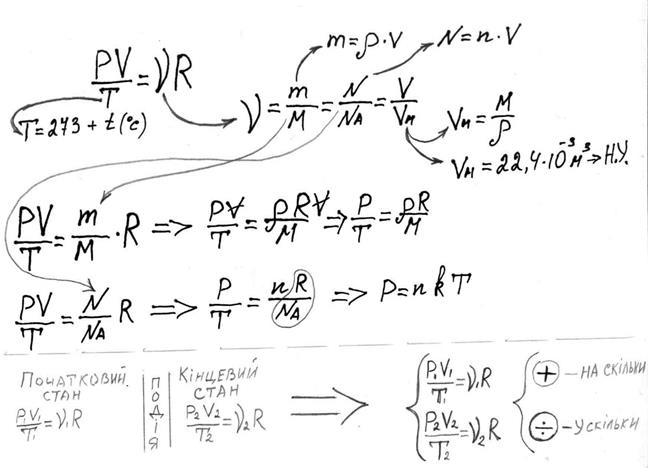 m=ρ·V
N=n·V
PV/T=νR
T=273+t(°c)
ν=m/M=N/NA=V/Vм
Vм=M/ρ
Vм=22,4·10⁻³м³→Н.У.
PV/T=m/M·R => PV/T=ρRV/M => P/T=ρR/M
PV/T=N/NA R => P/T=nR/NA => P=nkT
ПОЧАТКОВИЙ
СТАН
P₁V₁/T₁=ν₁R
ПОДІЯ
КІНЦЕВИЙ
СТАН
P₂V₂/T₂=ν₂R
=>
P₁V₁/T₁=ν₁R
P₂V₂/T₂=ν₂R
+ – НА СКІЛЬКИ
÷ – У СКІЛЬКИ